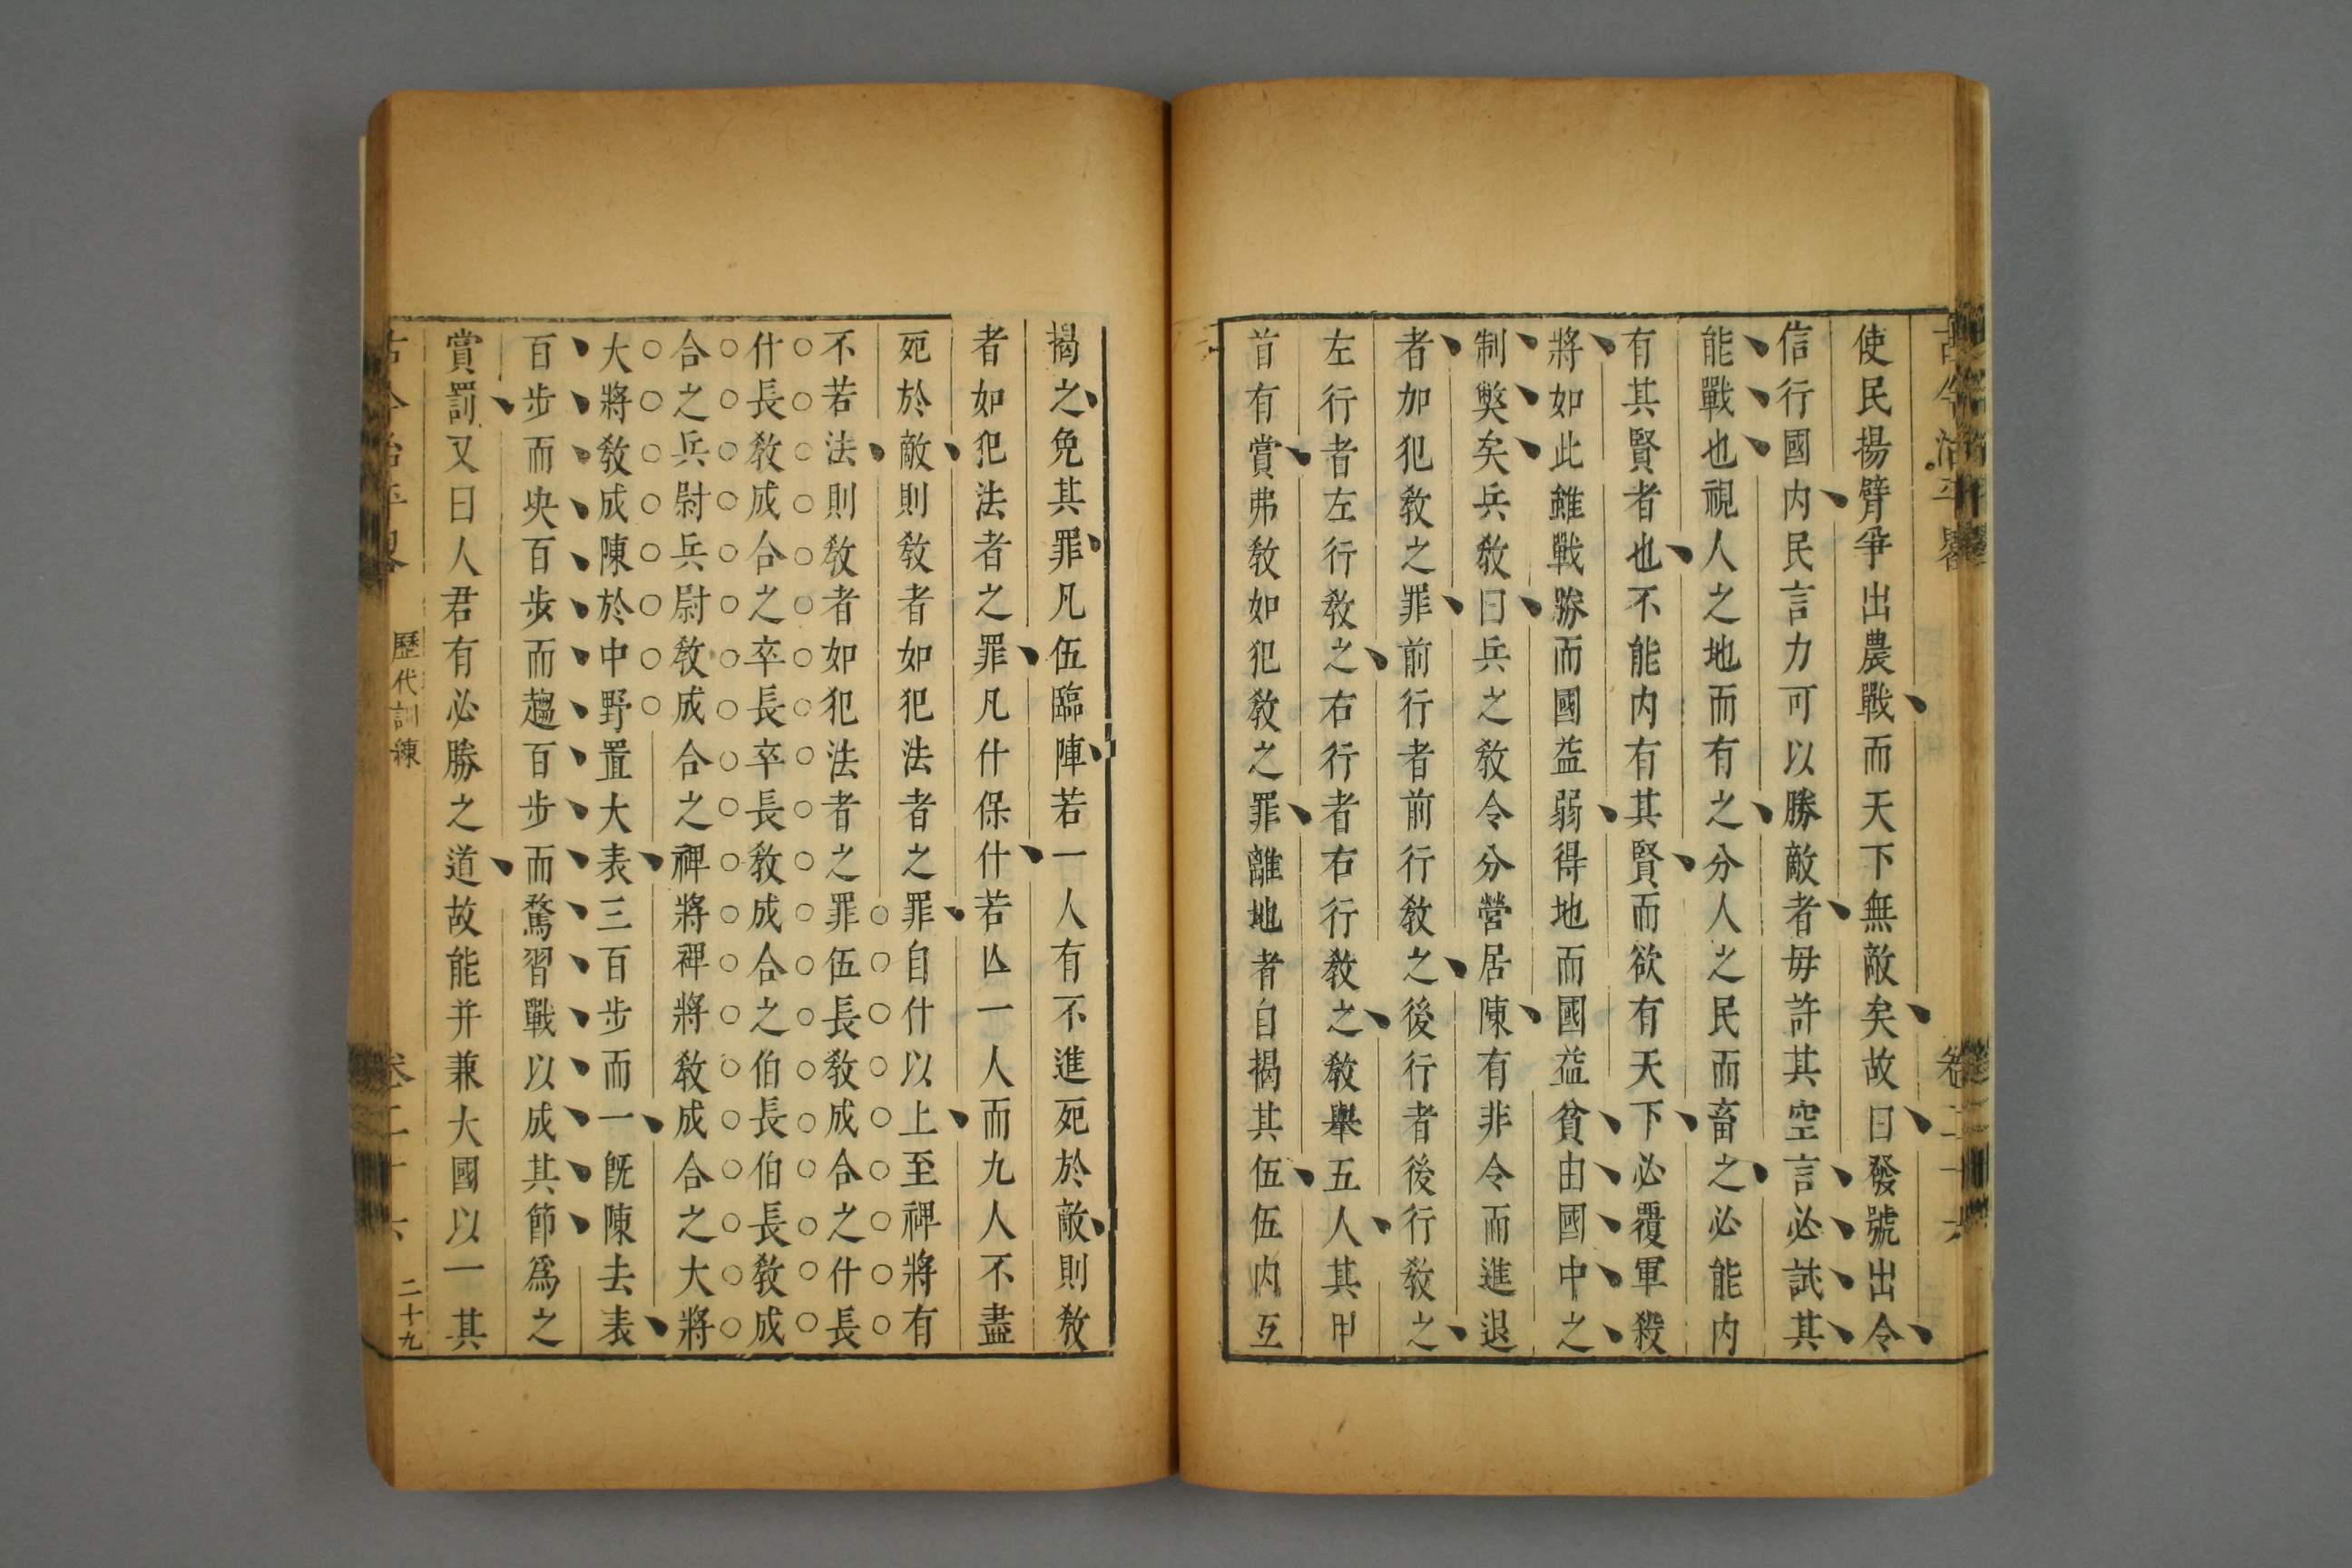 古今治平畧 卷二十六
使民揚臂爭出農戰而天下無敵矣故曰發號出令
信行國内民言力可以勝敵者毋許其空言必試其
能戰也視人之地而有之分人之民而畜之必能内
有其賢者也不能内有其賢而欲有天下必覆軍殺
將如此雖戰勝而國益弱得地而國益貧由國中之
制獘矣兵敎曰兵之敎令分營居陳有非令而進退
者加犯敎之罪前行者前行敎之後行者後行敎之
左行者左行敎之右行者右行敎之敎舉五人其甲
首有賞弗敎如犯敎之罪離地者自揭其伍伍内互
揭之免其罪凡伍臨陣若一人有不進死於敵則敎
者如犯法者之罪凡什保什若亾一人而九人不盡
死於敵則敎者如犯法者之罪自什以上至裨將有
不若法則敎者如犯法者之罪伍長敎成合之什長
什長敎成合之卒長卒長敎成合之伯長伯長敎成
合之兵尉兵尉敎成合之裨將裨將敎成合之大將
大將敎成陳於中野置大表三百步而一旣陳去表
百步而决百步而趨百步而騖習戰以成其節爲之
賞罰又曰人君有必勝之道故能并兼大國以一其
古今治平畧 歷代訓練 卷二十六 二十九